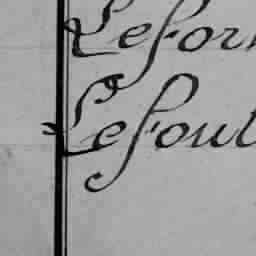 Lefor
Lefout